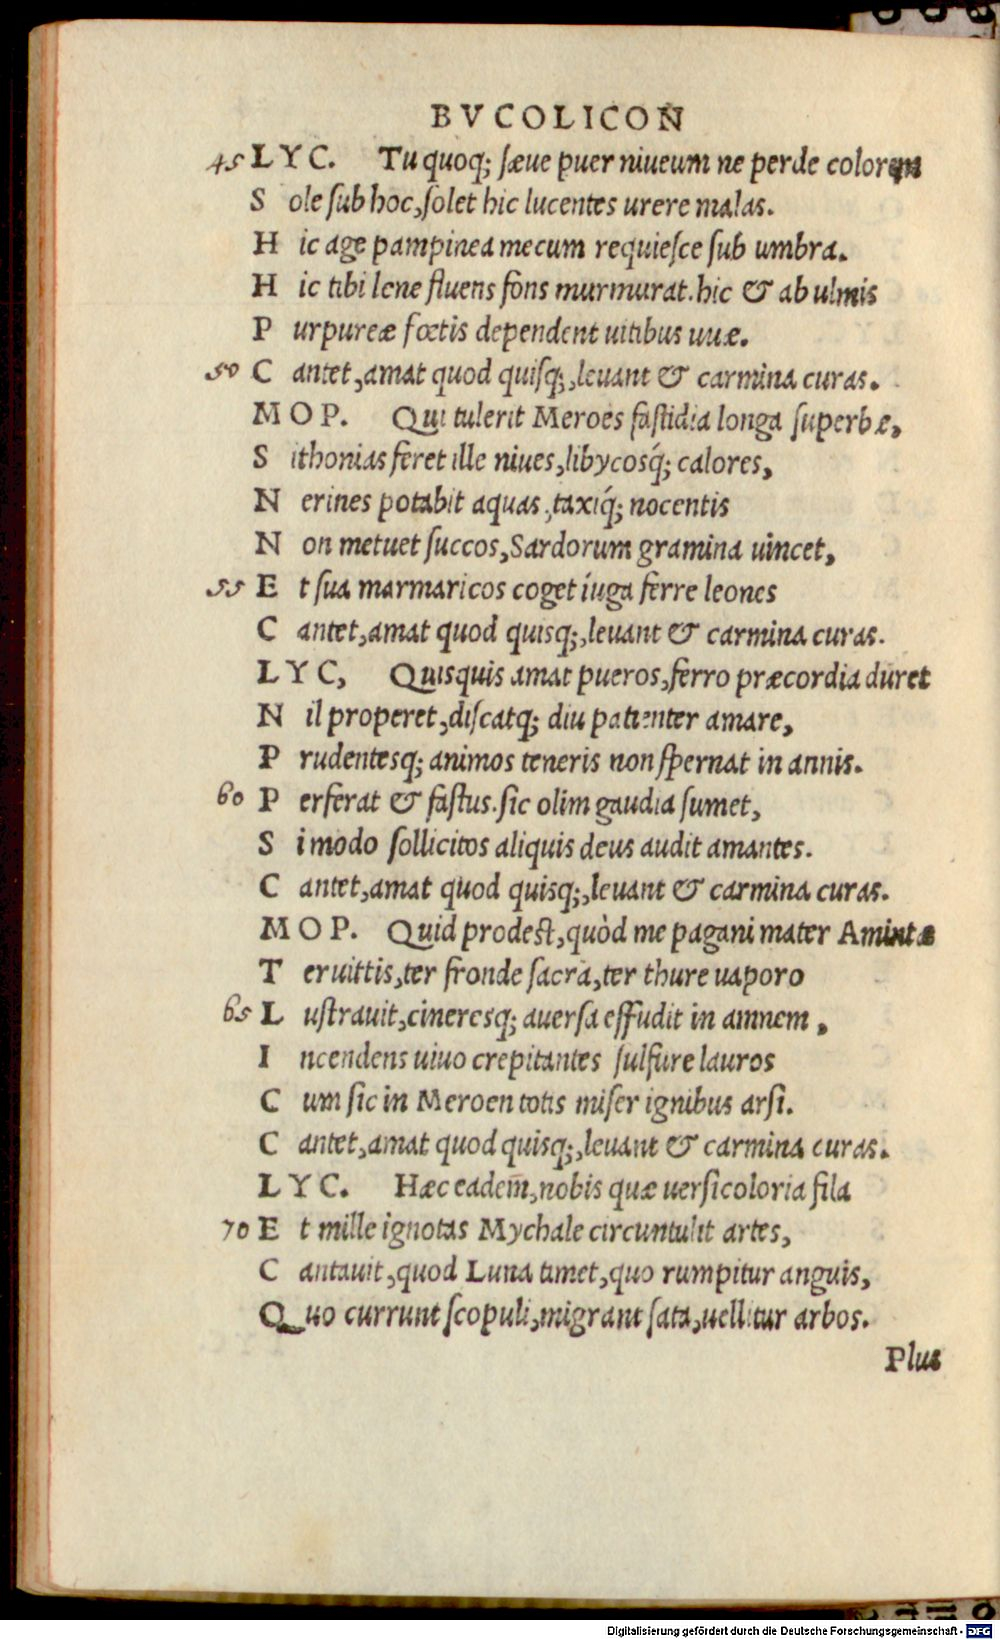 BVCOLICON
45 LYC. Tu quoq; ſæue puer niueum ne perde colorem
S ole ſub hoc, ſolet hic lucentes urere malas.
H ic age pampinea mecum requieſce ſub umbra.
H ic tibi lene fluens fons murmurat. hic & ab ulmis
P urpureæ fœtis dependent uitibus uuæ.
50 C antet, amat quod quiſq;, leuant & carmina curas.
MOP. Qui tulerit Meroes faſtidia longa ſuperbæ,
S ithonias feret ille niues, libycosq́; calores,
N erines potabit aquas, taxiq́; nocentis
N on metuet ſuccos, Sardorum gramina uincet,
55 E t ſua marmaricos coget iuga ferre leones
C antet, amat quod quisq;, leuant & carmina curas.
LYC, Quisquis amat pueros, ferro præcordia duret
N il properet, diſcatq; diu patienter amare,
P rudentesq; animos teneris non ſpernat in annis.
60 P erferat & faſtus. ſic olim gaudia ſumet,
S i modo ſollicitos aliquis deus audit amantes.
C antet, amat quod quisq;, leuant & carmina curas.
MOP. Quid prodeſt, quòd me pagani mater Amintæ
T er uittis, ter fronde ſacra, ter thure uaporo
65 L uſtrauit, cineresq; auerſa effudit in amnem,
I ncendens uiuo crepitantes ſulfure lauros
C um ſic in Meroen totis miſer ignibus arſi.
C antet, amat quod quisq;, leuant & carmina curas.
LYC. Hæc eadem̄, nobis quæ uerſicoloria fila
70 E t mille ignotas Mychale circuntulit artes,
C antauit, quod Luna timet, quo rumpitur anguis,
Quo currunt ſcopuli, migrant ſata, uellitur arbos.
Plus
Digitalisierung gefördert durch die Deutsche Forschungsgemeinschaft - DFG